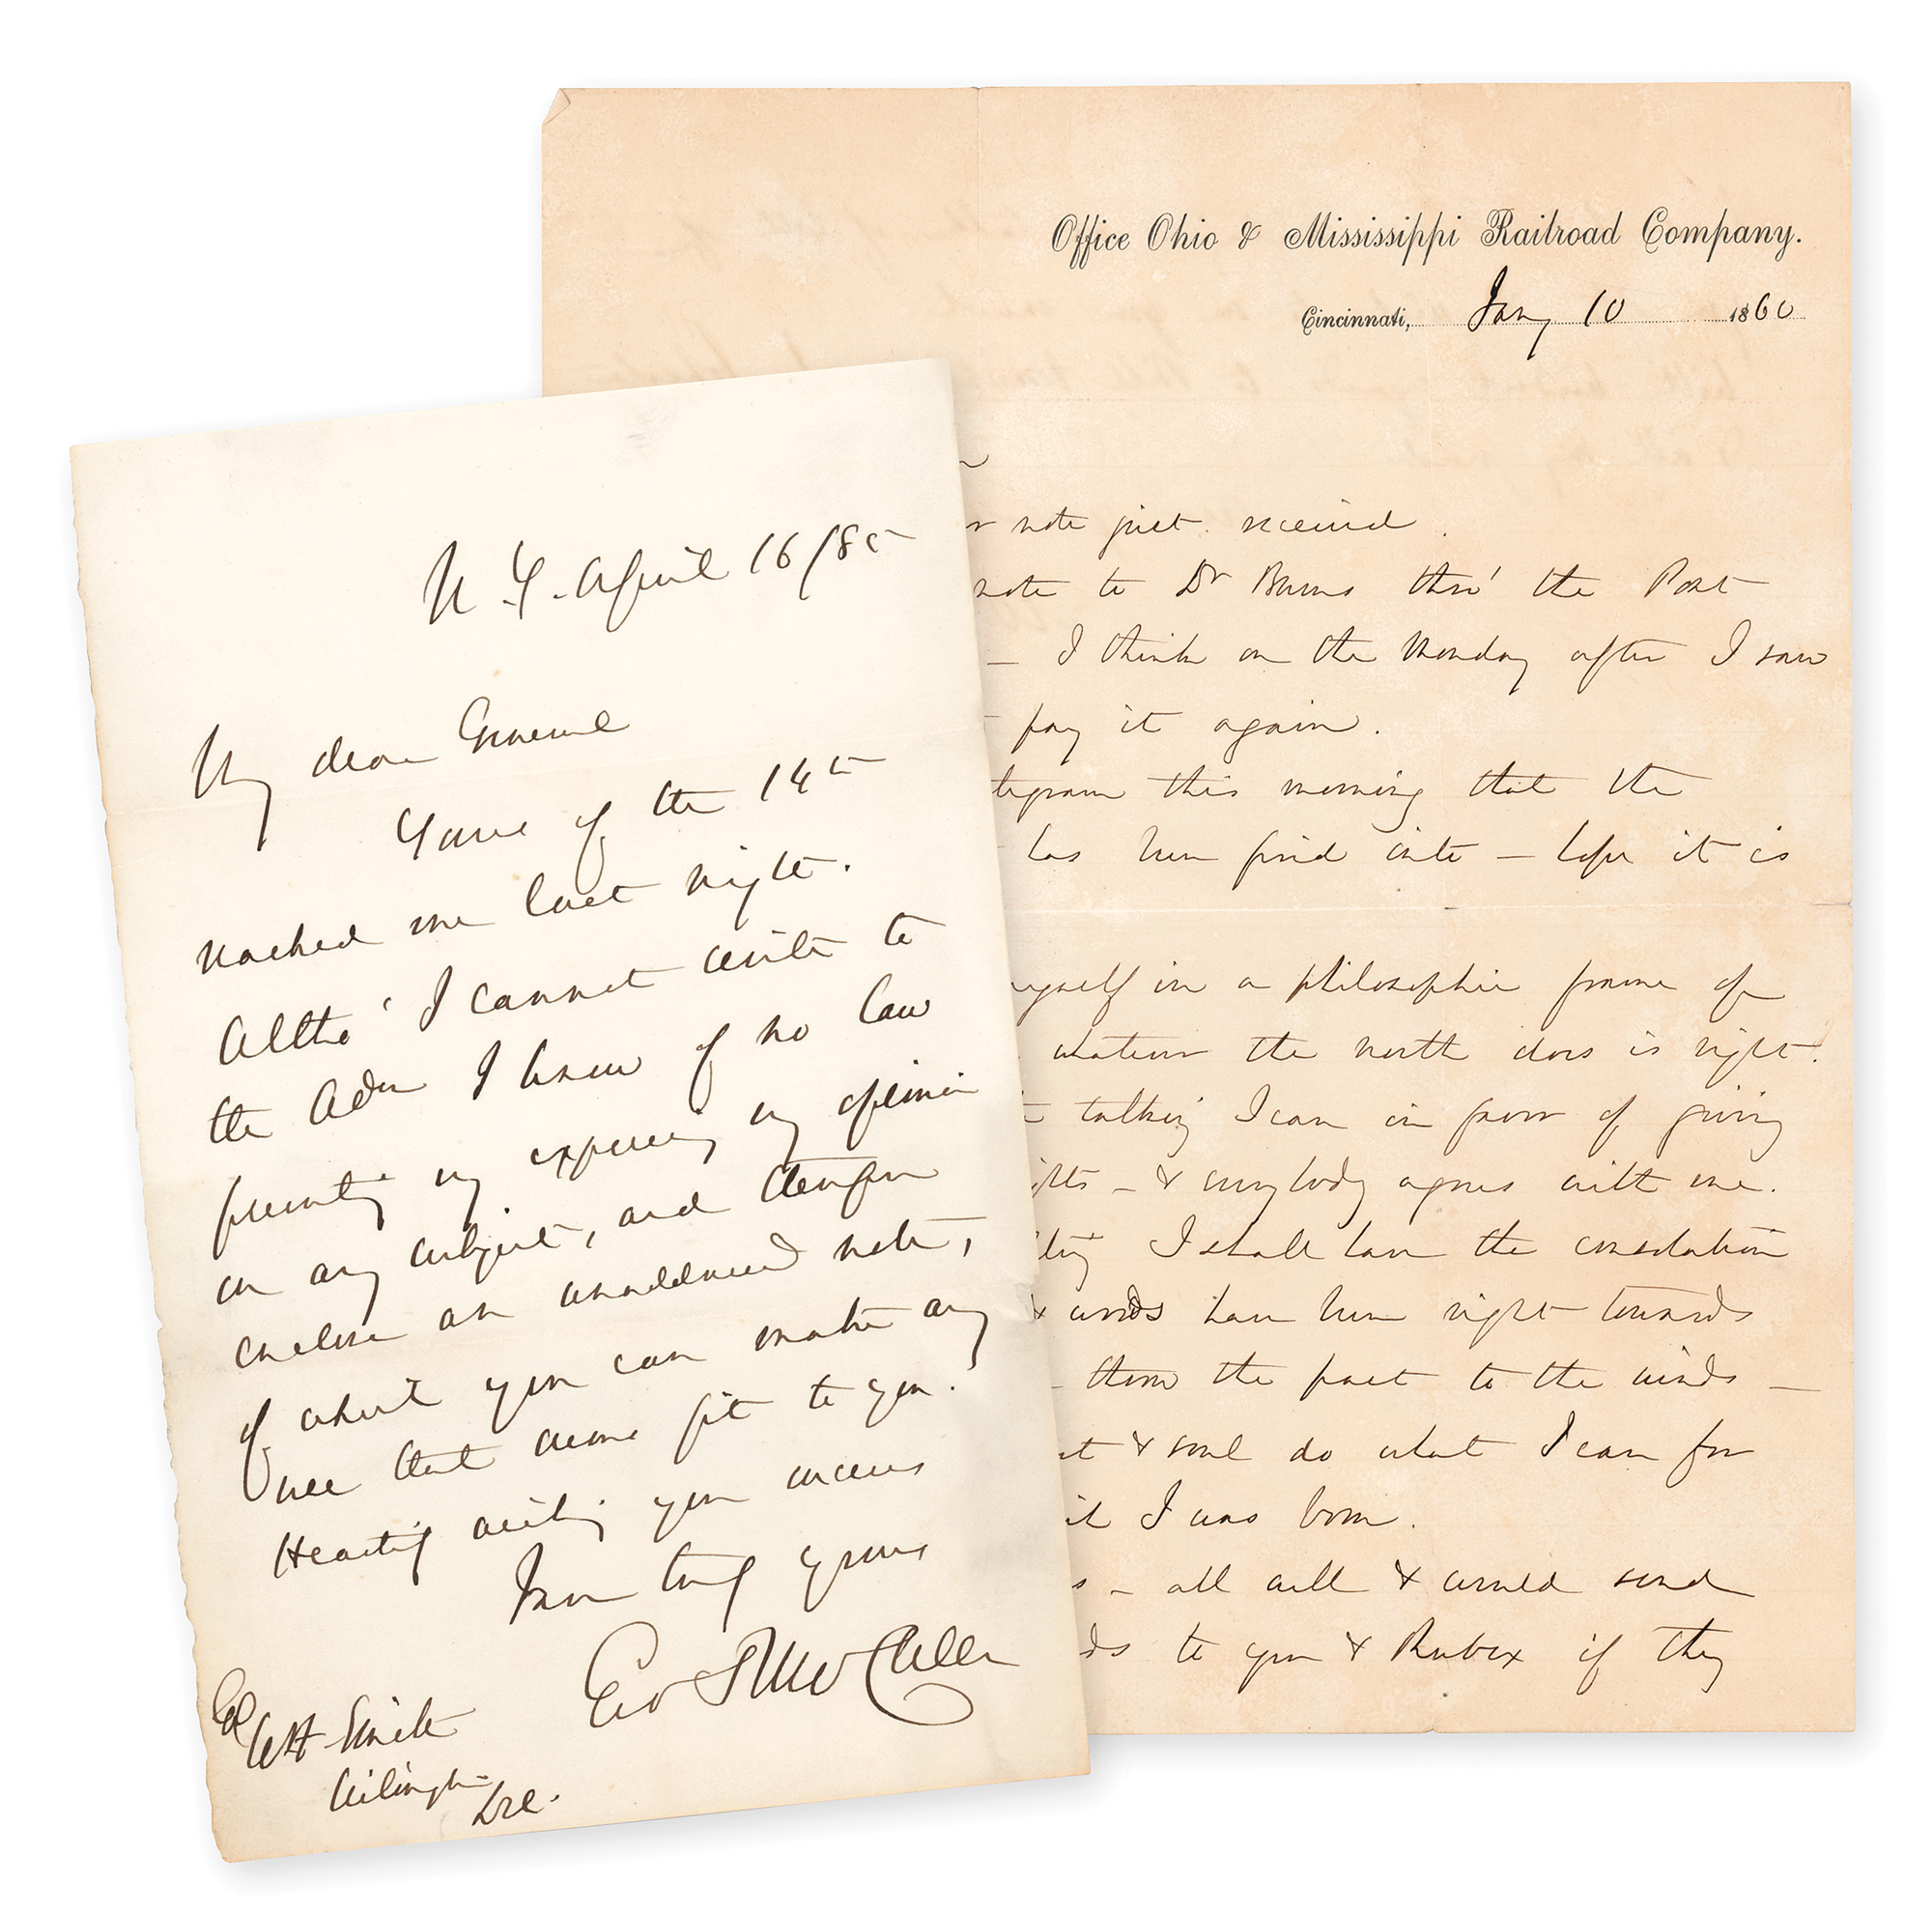 N.Y. April 16/85
My dear General
Yours of the 14th
reached me last night.
Altho' I cannot write to
the Adm I know of no law
preventing my expressing my opinion
on any subject, and therefore
enclose an unaddressed note,
of which you can make any
use that seems fit to you.
Heartily wishing you success
I am truly yours
Geo B McClellan
WH Smith
Wilmington
Del.
Office Ohio & Mississippi Railroad Company.
Cincinnati, Jany 10 1860
note just received.
note to Dr Burns thro' the Post
— I think on the Monday after I saw
pay it again.
this morning that the
has been fired into — hope it is
myself in a philosophic frame of
whatever the north does is right.
talking I can in favor of giving
— & everybody agrees with me.
I shall have the consolation
& words have been right towards
— throw the past to the winds —
& soul do what I can for
it I was born.
— all well & would send
to you & if they